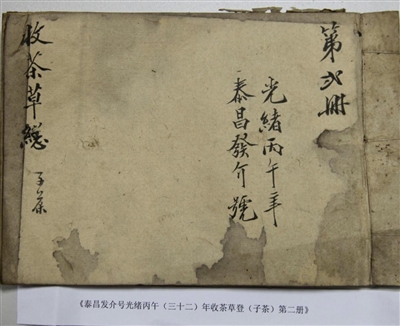 第弍冊
光緒丙午年
泰昌發介號
收茶草總
子茶
《泰昌发介号光绪丙午（三十二）年收茶草登（子茶）第二册》